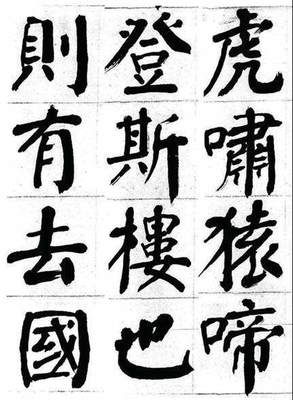 虎嘯猿啼
登斯樓也
則有去國